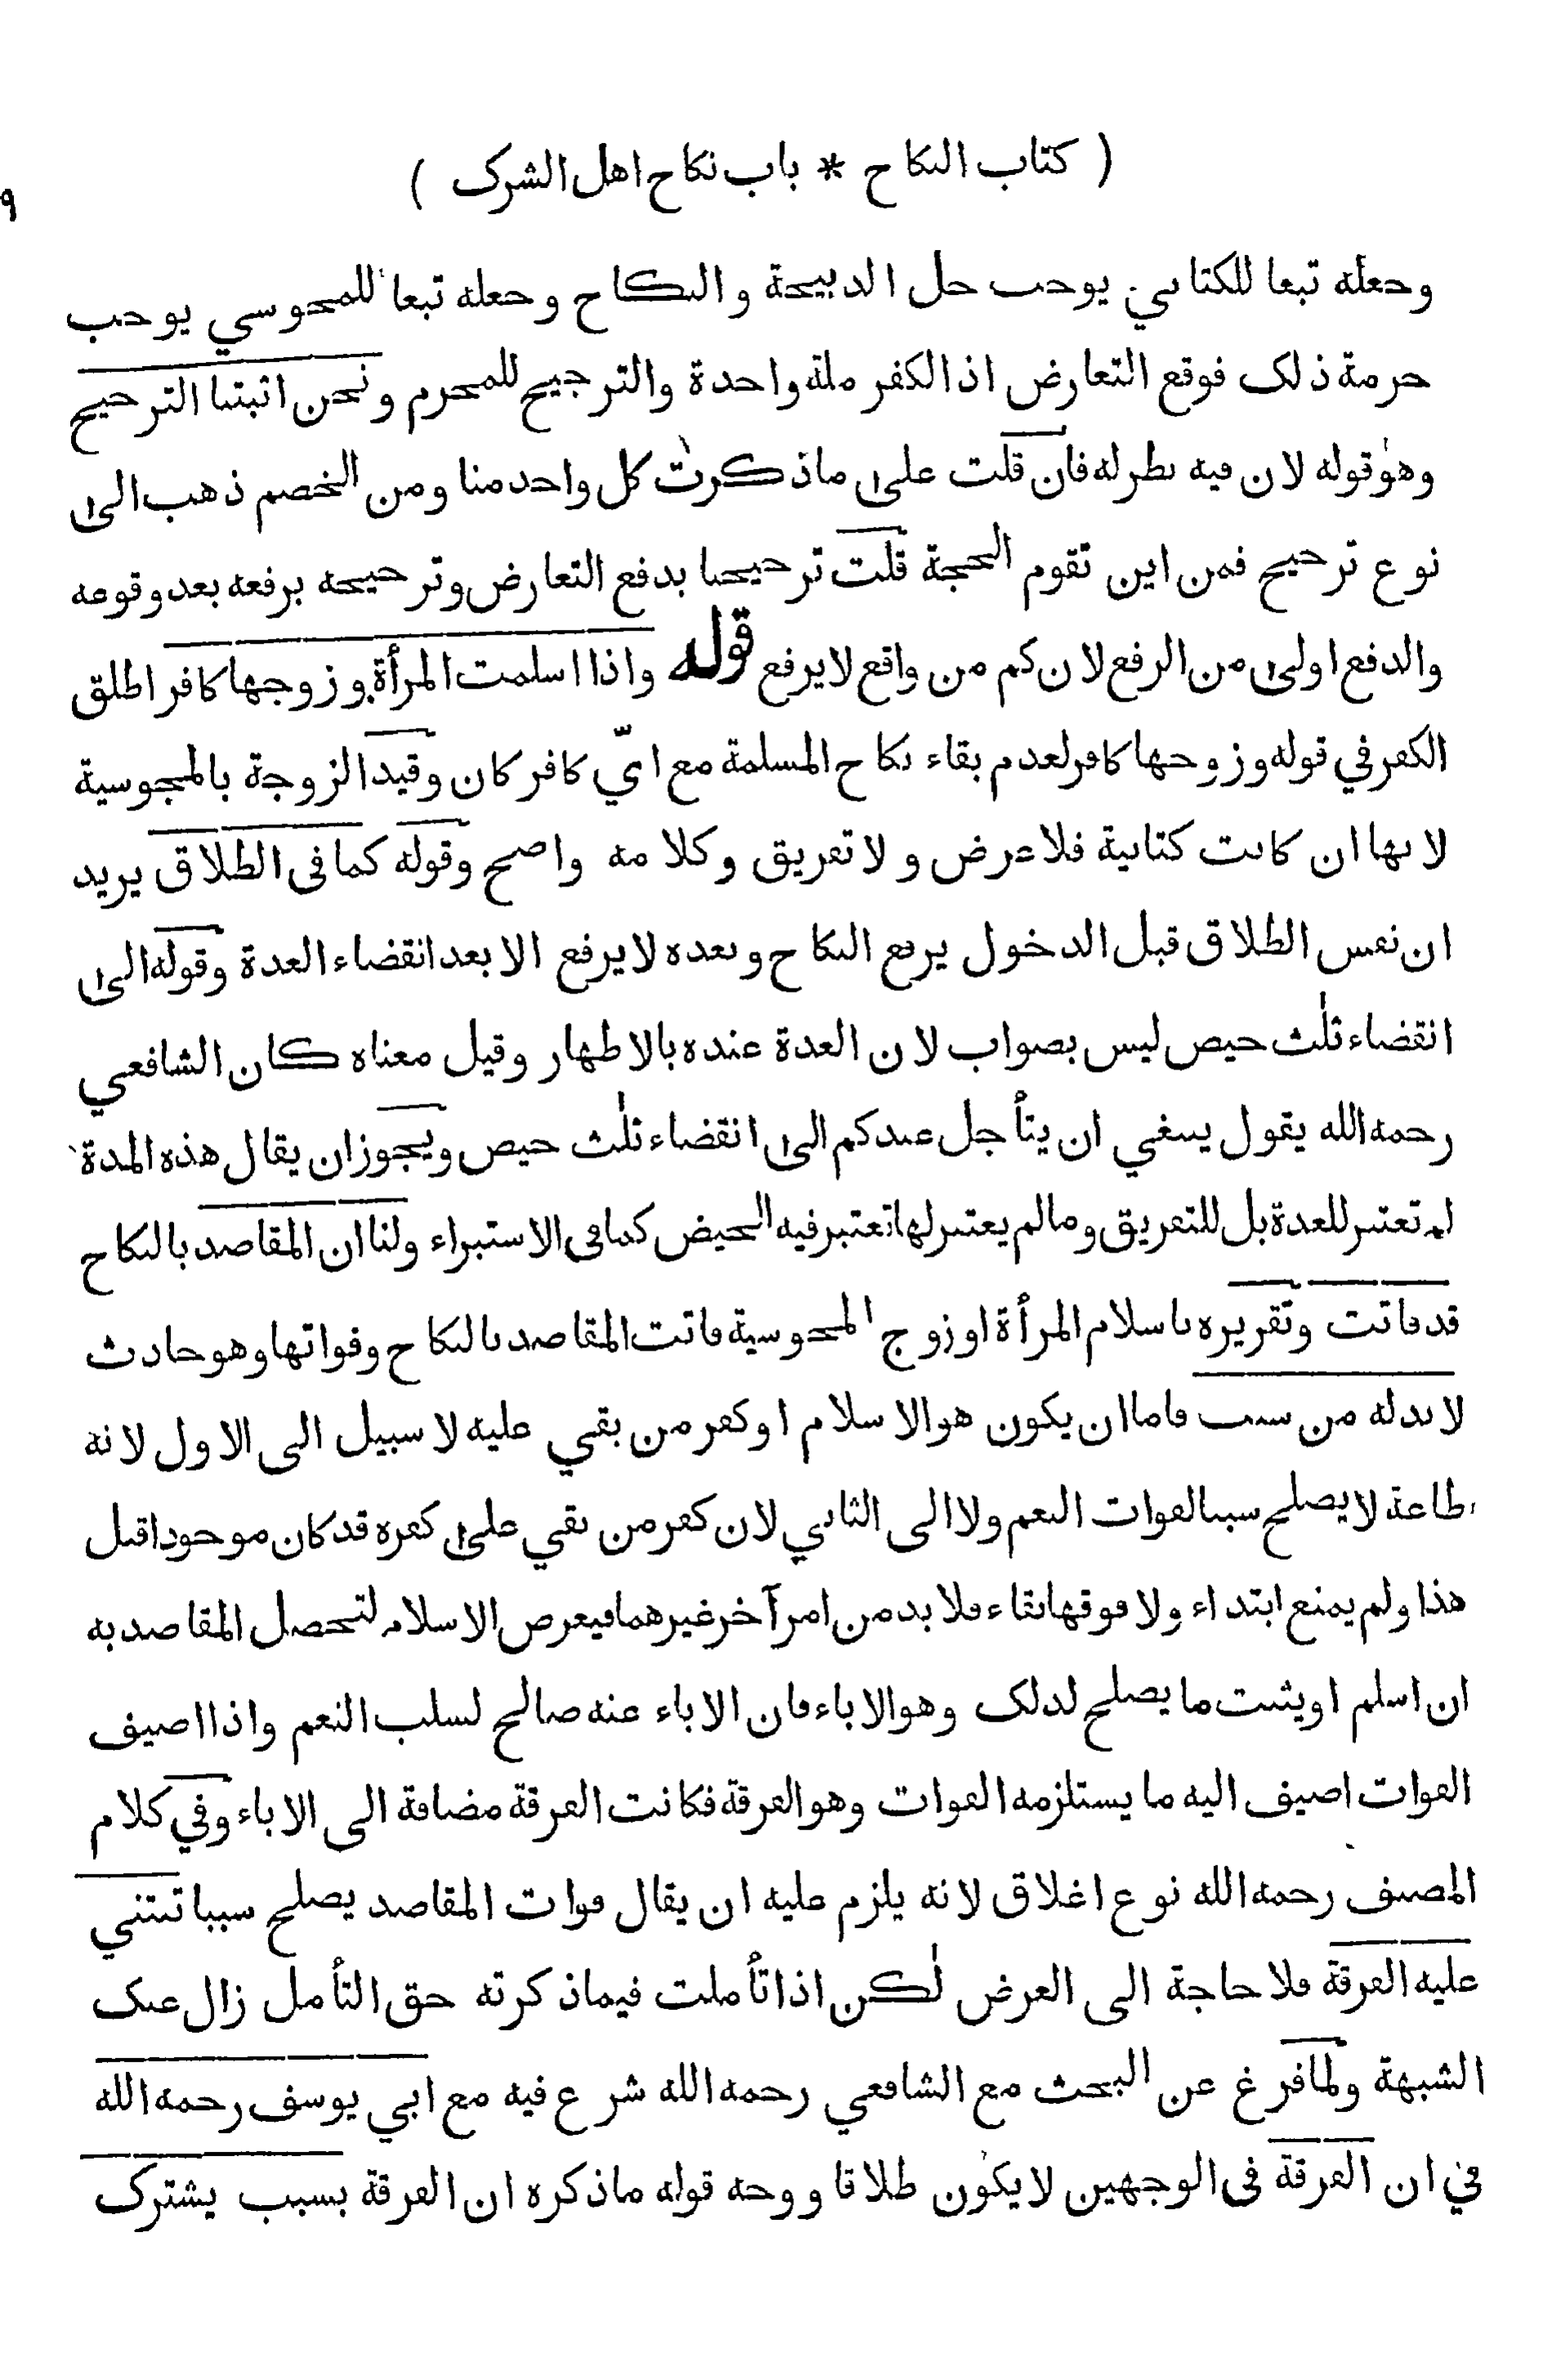 ( كتاب النكاح * باب نكاح اهل الشرك )
٩
وجعله تبعا للكتابي يوجب حل الذبيحة والنكاح وجعله تبعا للمجوسي يوجب
حرمة ذلك فوقع التعارض اذ الكفر ملة واحدة والترجيح للمحرم ونحن اثبتنا الترجيح
وهو قوله لان فيه نظر له فان قلت على ماذكرت كل واحد منا ومن الخصم ذهب الى
نوع ترجيح فمن اين تقوم الحجة قلت ترجيحنا بدفع التعارض وترجيحه برفعه بعد وقوعه
والدفع اولى من الرفع لان كم من واقع لايرفع قوله واذا اسلمت المرأة وزوجها كافر اطلق
الكفر في قوله وزوجها كافر لعدم بقاء نكاح المسلمة مع ايّ كافر كان وقيد الزوجة بالمجوسية
لانها ان كانت كتابية فلا عرض ولا تفريق وكلامه واضح وقوله كما فى الطلاق يريد
ان نفس الطلاق قبل الدخول يرفع النكاح وبعده لا يرفع الا بعد انقضاء العدة وقوله الى
انقضاء ثلٰث حيض ليس بصواب لان العدة عنده بالاطهار وقيل معناه كان الشافعي
رحمه الله يقول ينبغي ان يتأجل عندكم الى انقضاء ثلٰث حيض ويجوز ان يقال هذه المدة
لم تعتبر للعدة بل للتفريق وما لم يعتبر لها تعتبر فيه الحيض كما فى الاستبراء ولنا ان المقاصد بالنكاح
قد فاتت وتقريره باسلام المرأة او زوج المجوسية فاتت المقاصد بالنكاح وفواتها وهو حادث
لابد له من سبب فاما ان يكون هو الاسلام او كفر من بقي عليه لا سبيل الى الاول لانه
طاعة لا يصلح سببا لفوات النعم ولا الى الثاني لان كفر من بقي على كفره قد كان موجودا قبل
هذا ولم يمنع ابتداء ولا فوقها بقاء فلا بد من امر آخر غيرهما فيعرض الاسلام لتحصل المقاصد به
ان اسلم او يثبت ما يصلح لذلك وهو الاباء فان الاباء عنه صالح لسلب النعم واذا اضيف
الفوات اضيف اليه ما يستلزمه الفوات وهو الفرقة فكانت الفرقة مضافة الى الاباء وفي كلام
المصنف رحمه الله نوع اغلاق لانه يلزم عليه ان يقال فوات المقاصد يصلح سببا تبتني
عليه الفرقة فلا حاجة الى العرض لٰكن اذا تأملت فيما ذكرته حق التأمل زال عنك
الشبهة ولما فرغ عن البحث مع الشافعي رحمه الله شرع فيه مع ابي يوسف رحمه الله
في ان الفرقة فى الوجهين لا يكون طلاقا ووجه قوله ماذكره ان الفرقة بسبب يشترك